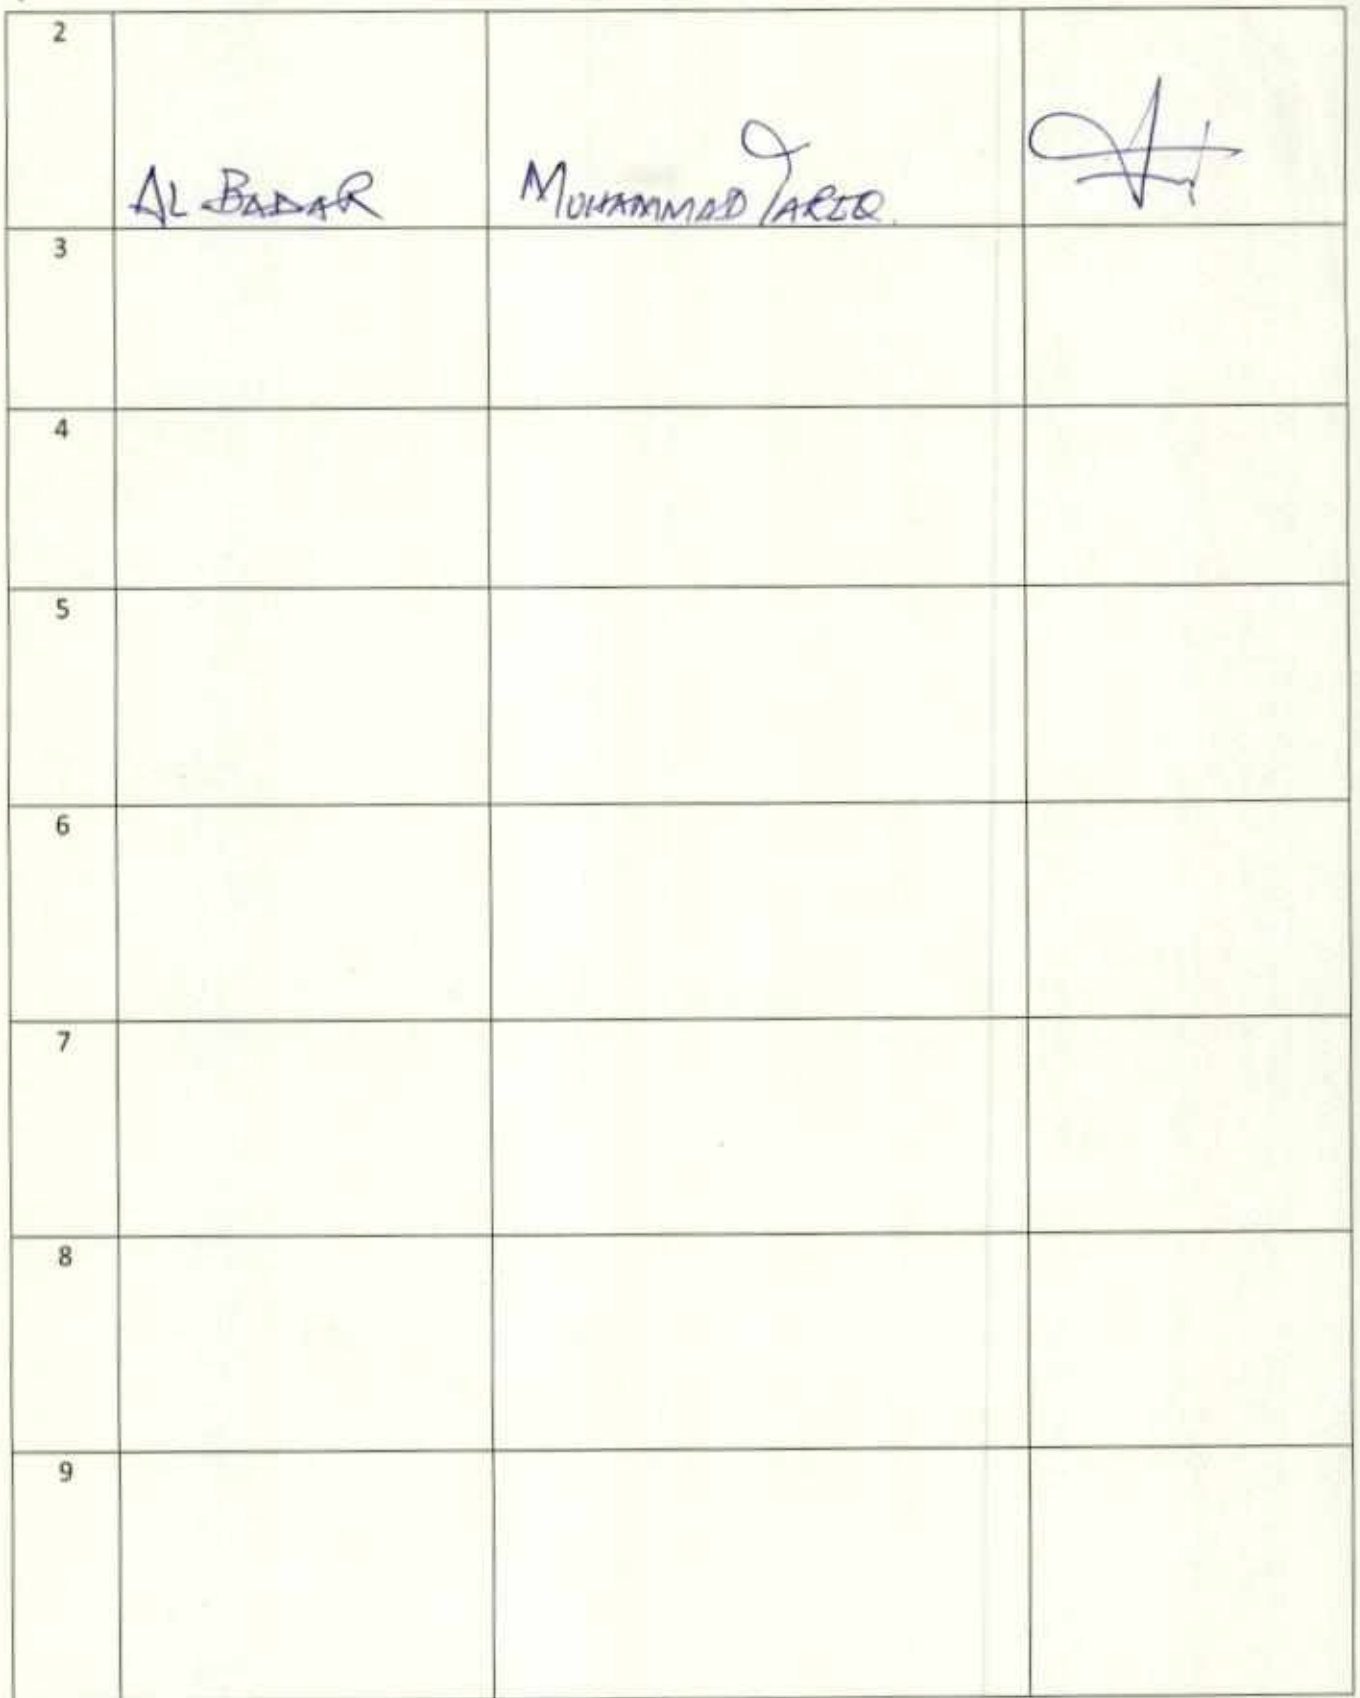 2
AL BADAR MUHAMMAD TARIQ.
3
4
5
6
7
8
9